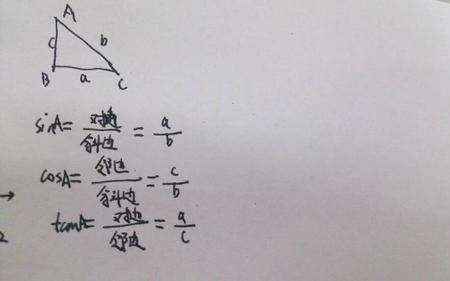 A
c b
B a C
sinA= 对边/斜边 = a/b
cosA= 邻边/斜边 = c/b
tanA= 对边/邻边 = a/c